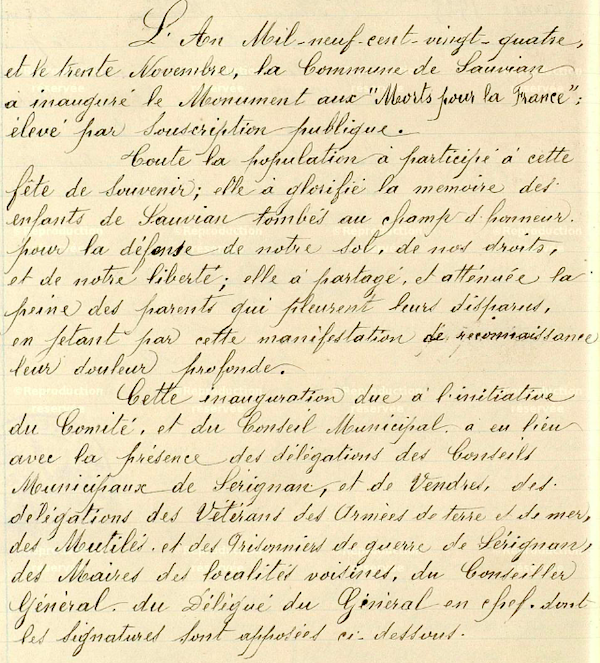 L'An Mil-neuf-cent-vingt-quatre,
et le trente Novembre, la Commune de Sauvian
à inauguré le Monument aux "Morts pour la France";
élevé par Souscription publique.
Toute la population à participé à cette
fête de Souvenir; elle à glorifié la memoire des
enfants de Sauvian tombés au champ d'honneur.
pour la défense de notre sol, de nos droits,
et de notre liberté; elle à partagé, et atténuée la
peine des parents qui pleurent leurs disparus,
en fetant par cette manifestation de reconnaissance
leur douleur profonde.
Cette inauguration due à l'initiative
du Comité, et du Conseil Municipal a eu lieu
avec la présence des délégations des Conseils
Municipaux de Sérignan, et de Vendres, des
délégations des Vétérans des Armées de terre et de mer,
des Mutilés et des Prisonniers de guerre de Sérignan,
des Maires des localités voisines, du Conseiller
Général. du Délégué du Général en chef. dont
les signatures sont apposées ci-dessous.